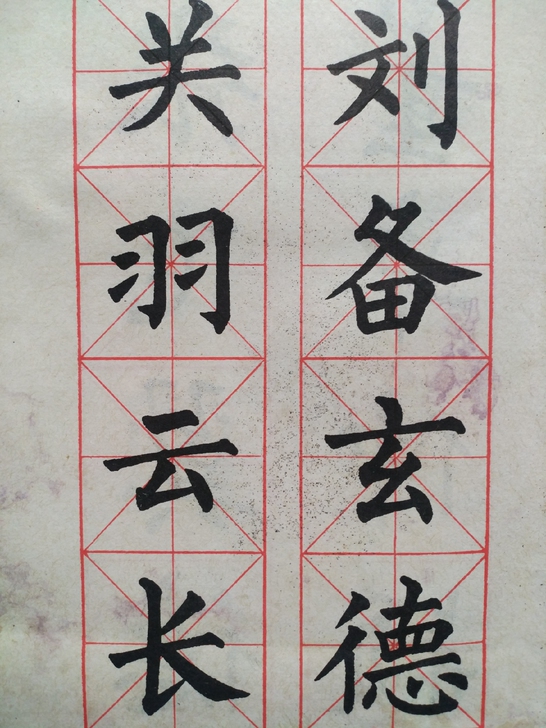 刘备玄德
关羽云长